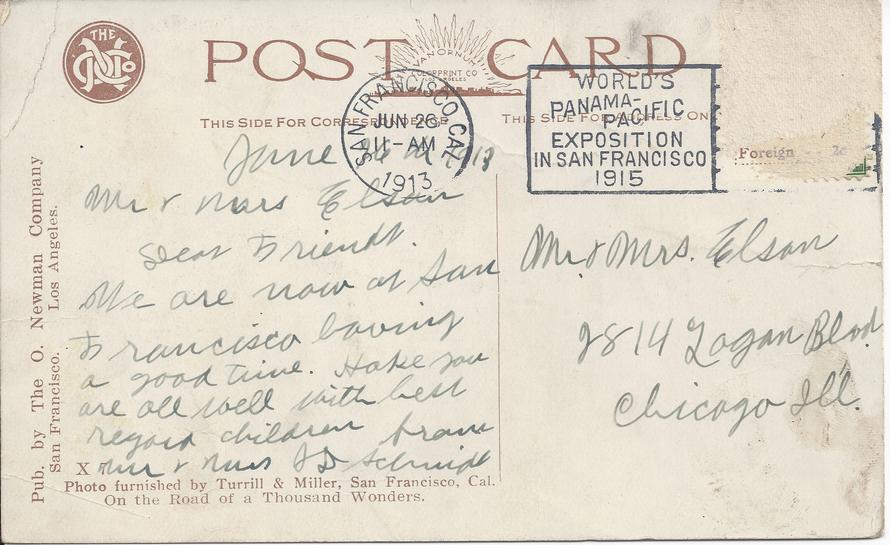 THE
NCo
POST CARD
VAN ORNUM
COLORPRINT CO
LOS ANGELES
THIS SIDE FOR CORRESPONDENCE
THIS SIDE FOR ADDRESS ON
SAN FRANCISCO, CAL.
JUN 26
11-AM
1913
WORLD'S
PANAMA-
PACIFIC
EXPOSITION
IN SAN FRANCISCO
1915
Foreign 2c
June 26
Mr & Mrs Elson
Dear Friends.
We are now at San
Francisco having
a good time. Hope you
are all well with best
regard children from
Mr & Mrs Schmidt
Mr & Mrs. Elson
2814 Logan Blvd
Chicago Ill.
Pub. by The O. Newman Company
San Francisco. Los Angeles.
X
Photo furnished by Turrill & Miller, San Francisco, Cal.
On the Road of a Thousand Wonders.